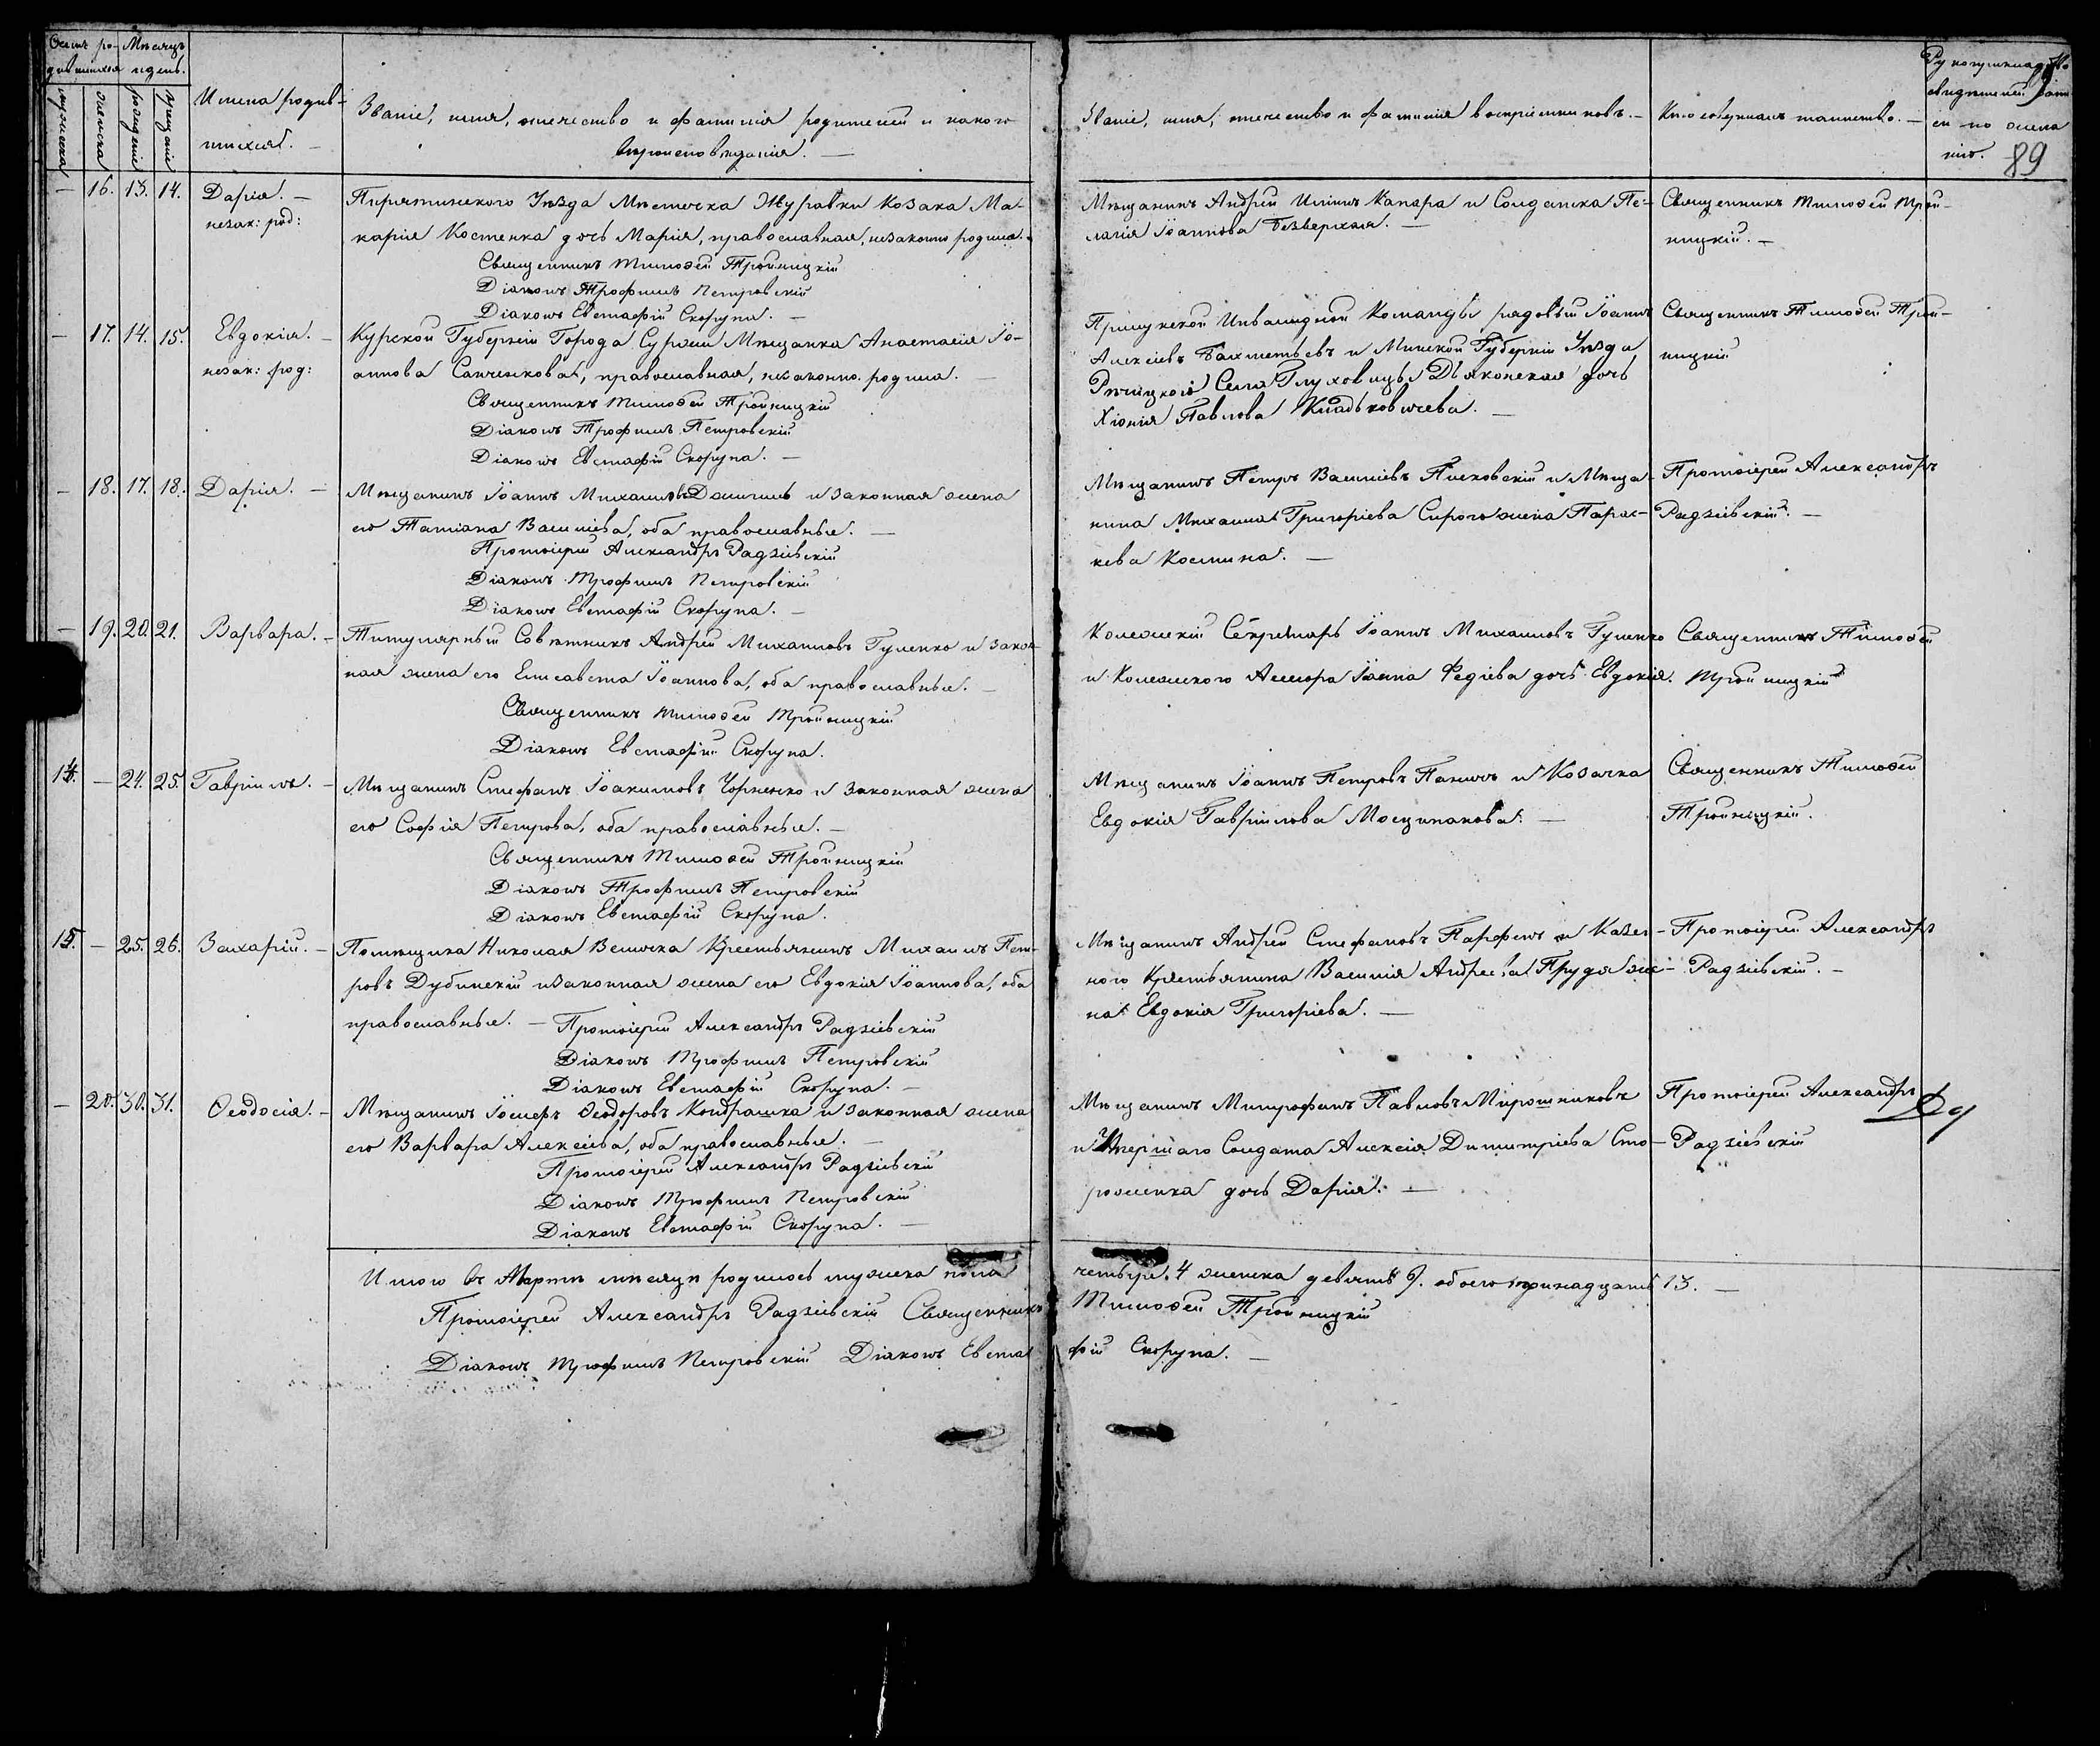 Счетъ ро- Мѣсяцъ
дившихся и день.
мужеска женска рожденіе крещеніе
Имена родив-
шихся. —
Званіе, имя, отечество и фамилія родителей и какого
вѣроисповѣданія. —
Званіе, имя, отечество и фамилія воспріемниковъ. —
Кто совершалъ таинство. —
89
— 16. 13. 14. Дарія. —
незак: род:
Пирятинского Уѣзда Мѣстечка Журавки Козака Ма-
карія Костенка дочь Марія, православная, незаконно родила. —
Священникъ Тимоѳей Тройницкій
Діаконъ Трофимъ Петровскій
Діаконъ Евстафій Скорупа. —
Мѣщанинъ Андрей Ильинъ Капара и Солдатка Пе-
лагія Іоаннова Безверхая. —
Священникъ Тимоѳей Трой-
ницкій. —
— 17. 14. 15. Евдокія. —
незак: род:
Курской Губерніи Города Суржи Мѣщанка Анастасія Іо-
аннова Санченкова, православная, незаконно родила. —
Священникъ Тимоѳей Тройницкій
Діаконъ Трофимъ Петровскій
Діаконъ Евстафій Скорупа. —
Прилуцкой Инвалидной Команды рядовый Іоаннъ
Алексіевъ Бахметьевъ и Минской Губерніи Уѣзда
Рѣчицкого Села Глуховицъ Дьяконская дочь
Хіонія Павлова —
Священникъ Тимоѳей Трой-
ницкій
— 18. 17. 18. Дарія. —
Мѣщанинъ Іоаннъ Михаиловъ и законная жена
его Татіана Василіева, оба православные. —
Протоіерей Александръ Радзіевскій
Діаконъ Трофимъ Петровскій
Діаконъ Евстафій Скорупа. —
Мѣщанинъ Петръ Василіевъ Пісковскій и Мѣща-
нина Михаила Григоріева Сирого жена Парас-
кева Космина. —
Протоіерей Александръ
Радзіевскій. —
— 19. 20. 21. Варвара. —
Титулярный Совѣтникъ Андрей Михаиловъ Гуленко и закон-
ная жена его Елисавета Іоаннова, оба православные. —
Священникъ Тимоѳей Тройницкій
Діаконъ Евстафій Скорупа.
Колежскій Секретарь Іоаннъ Михаиловъ Гуленко
и Колежского Ассесора Іоанна Федіева дочь Евдокія.
Священникъ Тимоѳей
Тройницкій
14. — 24. 25. Гавріилъ. —
Мѣщанинъ Стефанъ Іоакимовъ Чорненко и законная жена
его Софія Петрова, оба православные. —
Священникъ Тимоѳей Тройницкій
Діаконъ Трофимъ Петровскій
Діаконъ Евстафій Скорупа.
Мѣщанинъ Іоаннъ Петровъ Паничъ и Козачка
Евдокія Гавріилова Мосципакова. —
Священникъ Тимоѳей
Тройницкій.
15. — 25. 26. Захарій. —
Помѣщика Николая Величка Крестьянинъ Михаилъ Пет-
ровъ Дубинскій и законная жена его Евдокія Іоаннова, оба
православные. — Протоіерей Александръ Радзіевскій
Діаконъ Трофимъ Петровскій
Діаконъ Евстафій Скорупа. —
Мѣщанинъ Андрей Стефановъ Парфенъ и Казен-
ного Крестьянина Василія Андреева Грудя же-
на Евдокія Григоріева. —
Протоіерей Александръ
Радзіевскій. —
— 20. 30. 31. Ѳеодосія. —
Мѣщанинъ Іосифъ Ѳеодоровъ Кондрашка и законная жена
его Варвара Алексіева, оба православные. —
Протоіерей Александръ Радзіевскій
Діаконъ Трофимъ Петровскій
Діаконъ Евстафій Скорупа. —
Мѣщанинъ Митрофанъ Павловъ Мирошниковъ
и Умершаго Солдата Алексія Димитріева Сто-
роженка дочь Дарія. —
Протоіерей Александръ
Радзіевскій
Итого въ Мартѣ мѣсяцѣ родилось мужеска пола четыре. 4 женска девять 9. обоего тринадцать 13. —
Протоіерей Александръ Радзіевскій Священникъ Тимоѳей Тройницкій
Діаконъ Трофимъ Петровскій Діаконъ Евстафій Скорупа. —